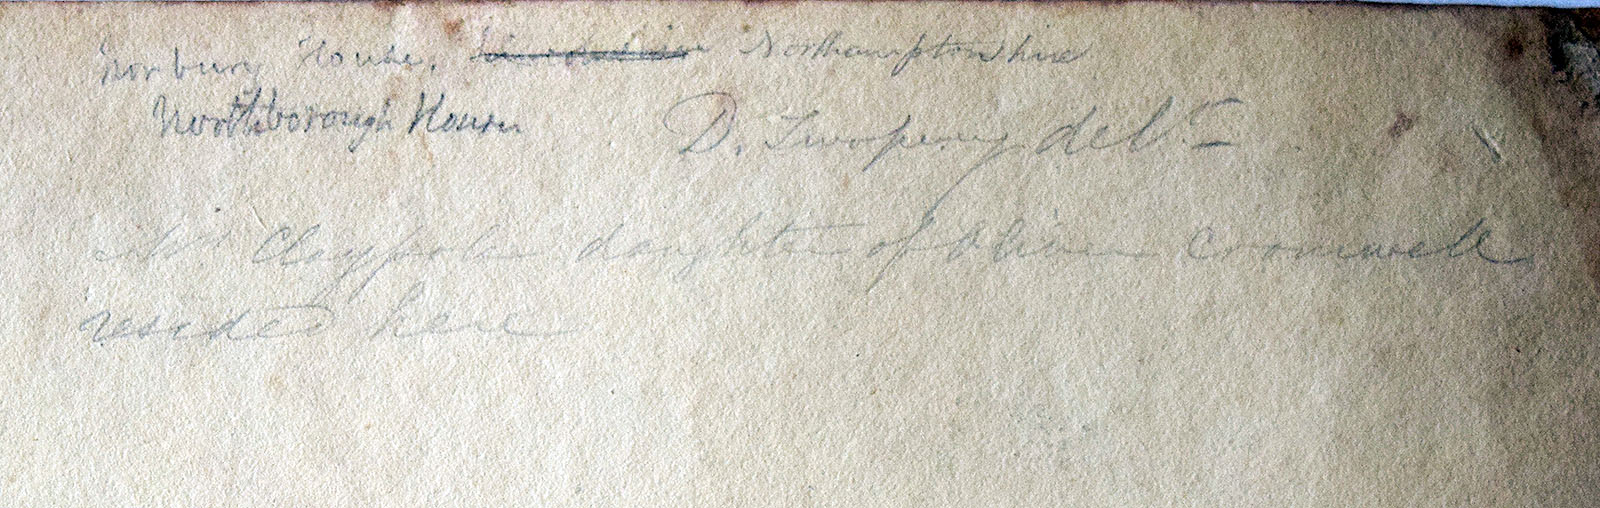 Norbury House, Northamptonshire
Northborough House
D. Twopeny delt
Mrs Claypole daughter of Oliver Cromwell
resided here